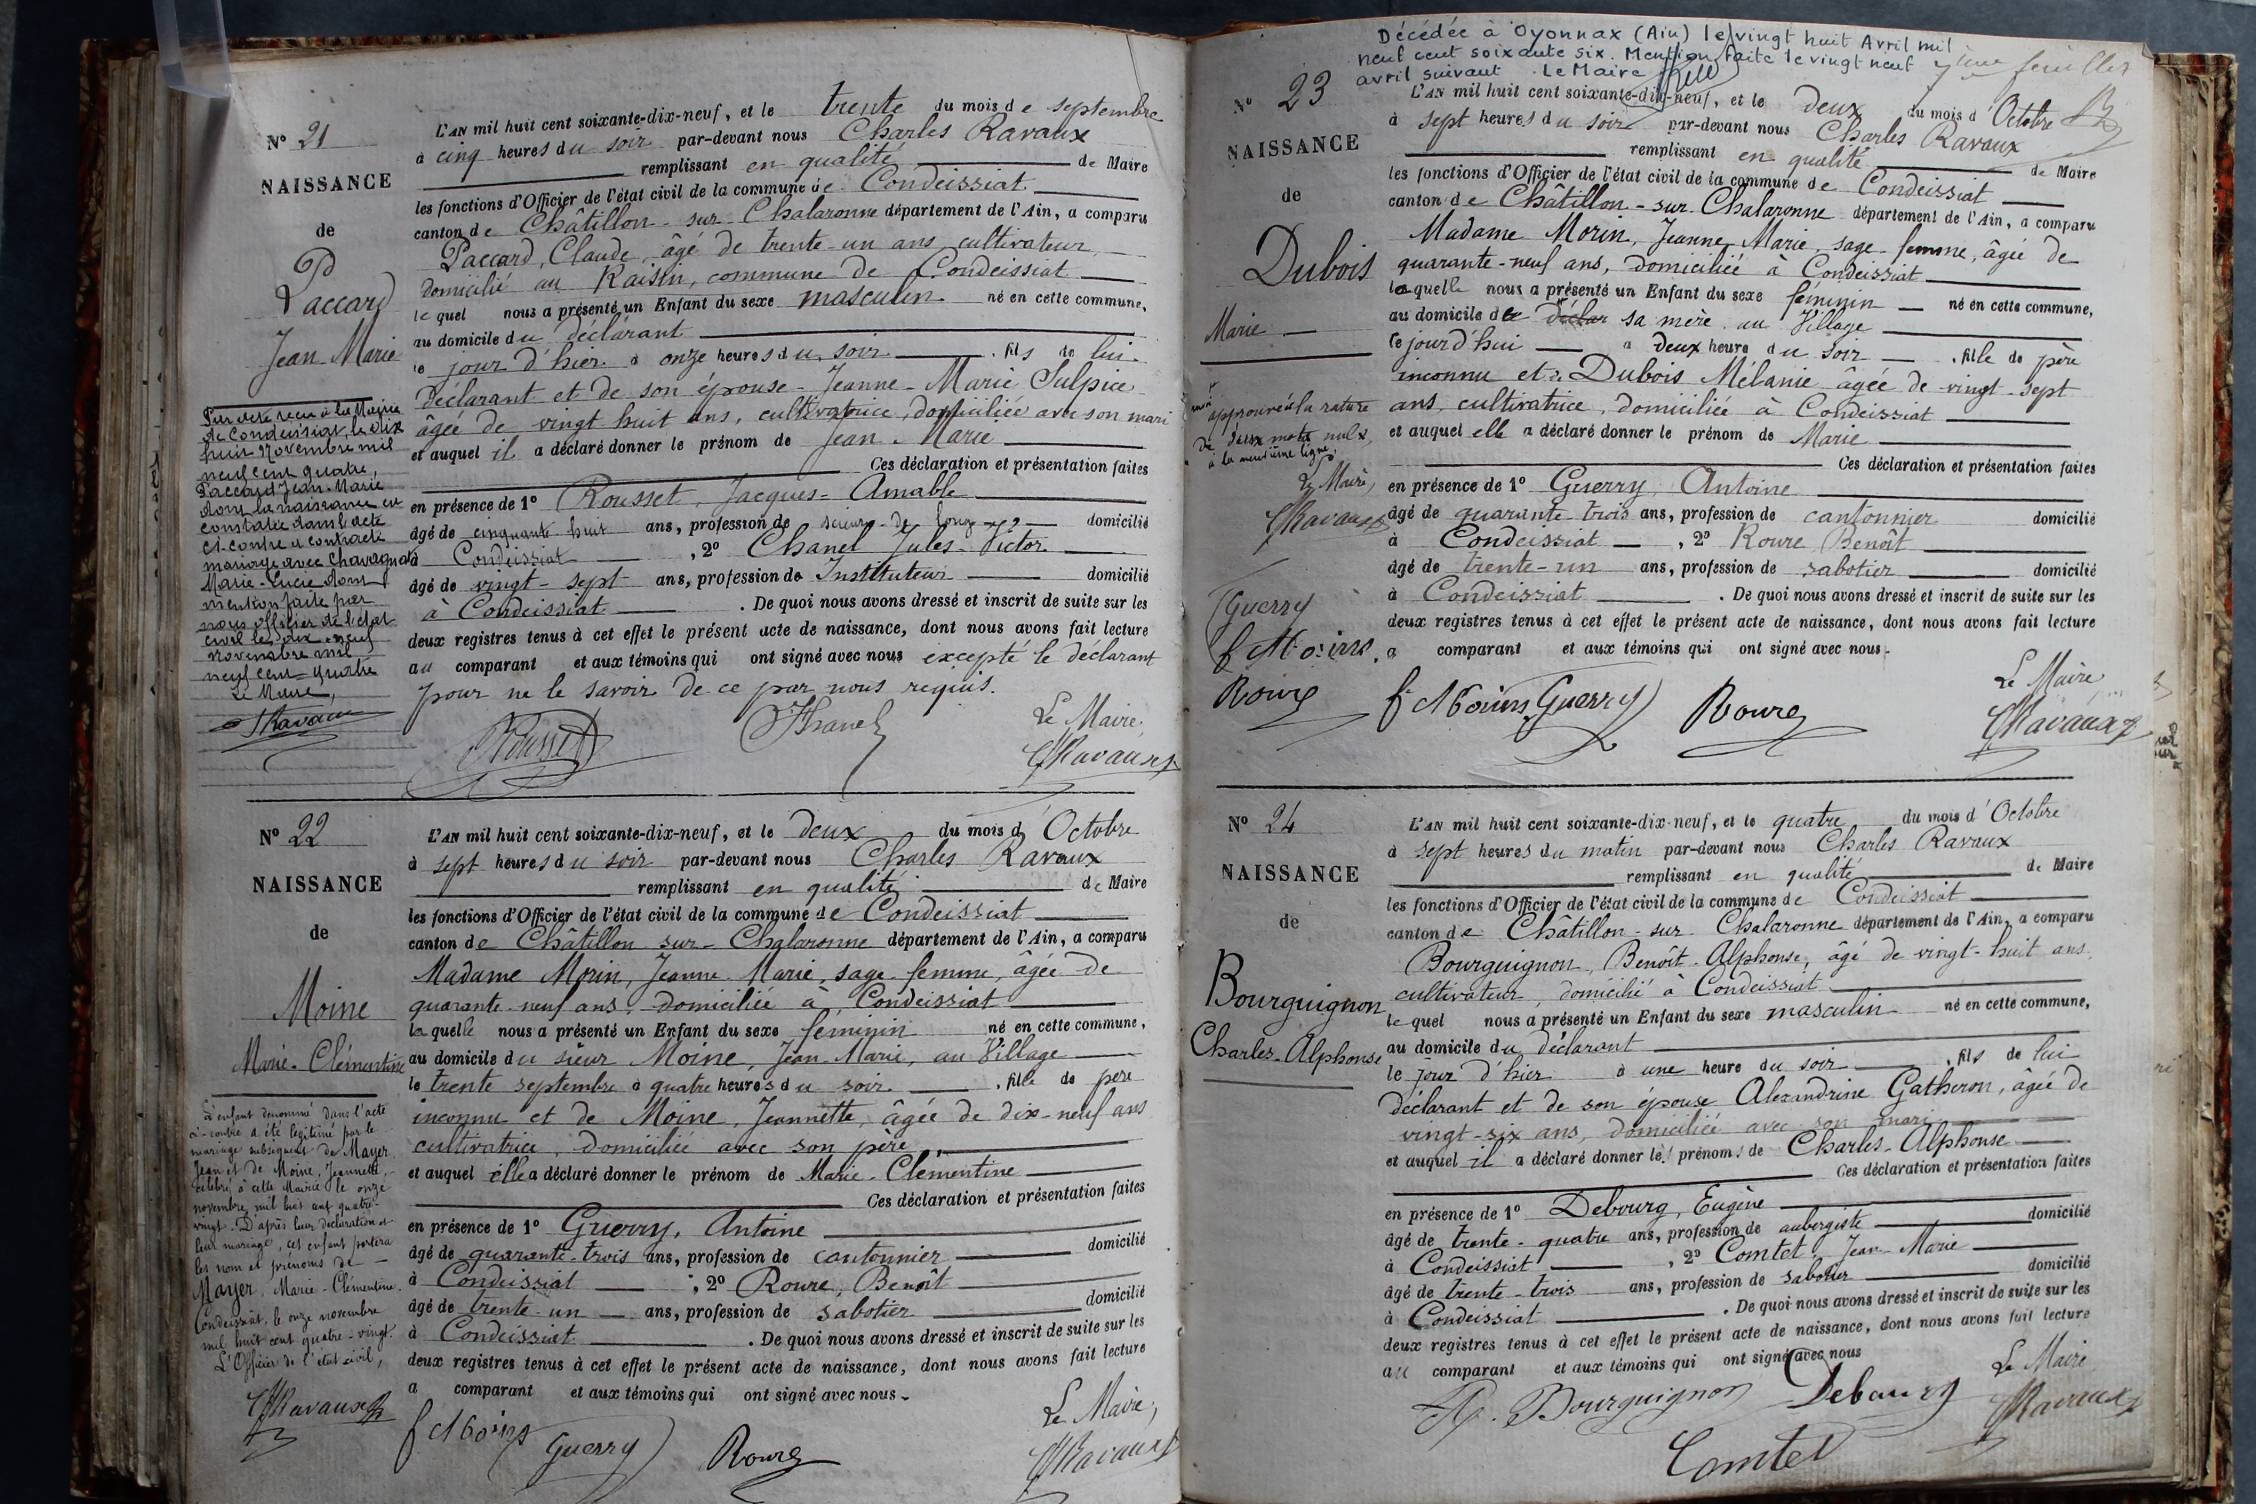 N° 21
NAISSANCE
de
Paccard
Jean-Marie
Par acte reçu à la Mairie
de Condeissiat, le dix
huit Novembre mil
neuf cent quatre,
Paccard Jean-Marie
dont la naissance est
constatée dans l'acte
ci-contre a contracté
mariage avec Chavagnat
Marie-Lucie dont
mention faite par
nous officier de l'état
civil le dix-neuf
novembre mil
neuf cent quatre
Le Maire,
Ravaux
L'AN mil huit cent soixante-dix-neuf, et le trente du mois de septembre
à cinq heures du soir par-devant nous Charles Ravaux
remplissant en qualité de Maire
les fonctions d'Officier de l'état civil de la commune de Condeissiat
canton de Châtillon-sur-Chalaronne département de l'Ain, a comparu
Paccard, Claude, âgé de trente-un ans, cultivateur,
domicilié au Raisin, commune de Condeissiat
lequel nous a présenté un Enfant du sexe masculin né en cette commune,
au domicile du déclarant
le jour d'hier à onze heures du soir, fils de lui
déclarant et de son épouse Jeanne-Marie Sulpice
âgée de vingt huit ans, cultivatrice, domiciliée avec son mari
et auquel il a déclaré donner le prénom de Jean-Marie
Ces déclaration et présentation faites
en présence de 1° Rousset, Jacques-Amable
âgé de cinquante huit ans, profession de scieur de long domicilié
à Condeissiat, 2° Chanel Jules-Victor
âgé de vingt-sept ans, profession de Instituteur domicilié
à Condeissiat. De quoi nous avons dressé et inscrit de suite sur les
deux registres tenus à cet effet le présent acte de naissance, dont nous avons fait lecture
au comparant et aux témoins qui ont signé avec nous excepté le déclarant
pour ne le savoir de ce par nous requis.
Le Maire,
Rousset Chanel Ravaux
N° 22
NAISSANCE
de
Moine
Marie-Clémentine
L'enfant dénommé dans l'acte
ci-contre a été légitimé par le
mariage subséquent de Mayer
Jean et de Moine, Jeannette,
célébré à cette Mairie le onze
novembre mil huit cent quatre-
vingt. D'après leur déclaration et
leur mariage, cet enfant portera
les nom et prénoms de
Mayer, Marie-Clémentine.
Condeissiat, le onze novembre
mil huit cent quatre-vingt.
L'Officier de l'état civil,
Ravaux
L'AN mil huit cent soixante-dix-neuf, et le deux du mois d'Octobre
à sept heures du soir par-devant nous Charles Ravaux
remplissant en qualité de Maire
les fonctions d'Officier de l'état civil de la commune de Condeissiat
canton de Châtillon-sur-Chalaronne département de l'Ain, a comparu
Madame Morin, Jeanne Marie, sage-femme, âgée de
quarante-neuf ans, domiciliée à Condeissiat
laquelle nous a présenté un Enfant du sexe féminin né en cette commune,
au domicile du sieur Moine, Jean-Marie, au Village
le trente septembre à quatre heures du soir, fille de père
inconnu et de Moine, Jeannette, âgée de dix-neuf ans
cultivatrice, domiciliée avec son père
et auquel elle a déclaré donner le prénom de Marie-Clémentine
Ces déclaration et présentation faites
en présence de 1° Guerry, Antoine
âgé de quarante-trois ans, profession de cantonnier domicilié
à Condeissiat, 2° Roure, Benoît
âgé de trente-un ans, profession de sabotier domicilié
à Condeissiat. De quoi nous avons dressé et inscrit de suite sur les
deux registres tenus à cet effet le présent acte de naissance, dont nous avons fait lecture
a comparant et aux témoins qui ont signé avec nous.
Le Maire,
Guerry Roure Ravaux
Décédée à Oyonnax (Ain) le vingt huit Avril mil
neuf cent soixante six. Mention faite le vingt neuf
avril suivant. Le Maire
feuillet
N° 23
NAISSANCE
de
Dubois
Marie
approuvé la rature
de deux mots nuls,
à la neuvième ligne.
Le Maire,
Ravaux
Guerry
Roure
L'AN mil huit cent soixante-dix-neuf, et le deux du mois d'Octobre
à sept heures du soir par-devant nous Charles Ravaux
remplissant en qualité de Maire
les fonctions d'Officier de l'état civil de la commune de Condeissiat
canton de Châtillon-sur-Chalaronne département de l'Ain, a comparu
Madame Morin, Jeanne Marie, sage-femme, âgée de
quarante-neuf ans, domiciliée à Condeissiat
laquelle nous a présenté un Enfant du sexe féminin né en cette commune,
au domicile de déclar sa mère au Village
ce jourd'hui à deux heure du soir, fille de père
inconnu et de Dubois Mélanie âgée de vingt-sept
ans, cultivatrice, domiciliée à Condeissiat
et auquel elle a déclaré donner le prénom de Marie
Ces déclaration et présentation faites
en présence de 1° Guerry Antoine
âgé de quarante-trois ans, profession de cantonnier domicilié
à Condeissiat, 2° Roure Benoît
âgé de trente-un ans, profession de sabotier domicilié
à Condeissiat. De quoi nous avons dressé et inscrit de suite sur les
deux registres tenus à cet effet le présent acte de naissance, dont nous avons fait lecture
a comparant et aux témoins qui ont signé avec nous.
Le Maire
Guerry Roure Ravaux
N° 24
NAISSANCE
de
Bourguignon
Charles-Alphonse
L'AN mil huit cent soixante-dix-neuf, et le quatre du mois d'Octobre
à sept heures du matin par-devant nous Charles Ravaux
remplissant en qualité de Maire
les fonctions d'Officier de l'état civil de la commune de Condeissiat
canton de Châtillon-sur-Chalaronne département de l'Ain, a comparu
Bourguignon, Benoît-Alphonse, âgé de vingt-huit ans,
cultivateur, domicilié à Condeissiat
lequel nous a présenté un Enfant du sexe masculin né en cette commune,
au domicile du déclarant
le jour d'hier à une heure du soir, fils de lui
déclarant et de son épouse Alexandrine Gatheron, âgée de
vingt-six ans, domiciliée avec son mari
et auquel il a déclaré donner les prénoms de Charles-Alphonse
Ces déclaration et présentation faites
en présence de 1° Debourg, Eugène
âgé de trente-quatre ans, profession de aubergiste domicilié
à Condeissiat, 2° Comtet, Jean-Marie
âgé de trente-trois ans, profession de sabotier domicilié
à Condeissiat. De quoi nous avons dressé et inscrit de suite sur les
deux registres tenus à cet effet le présent acte de naissance, dont nous avons fait lecture
au comparant et aux témoins qui ont signé avec nous
Le Maire
Bourguignon Debourg Ravaux
Comtet